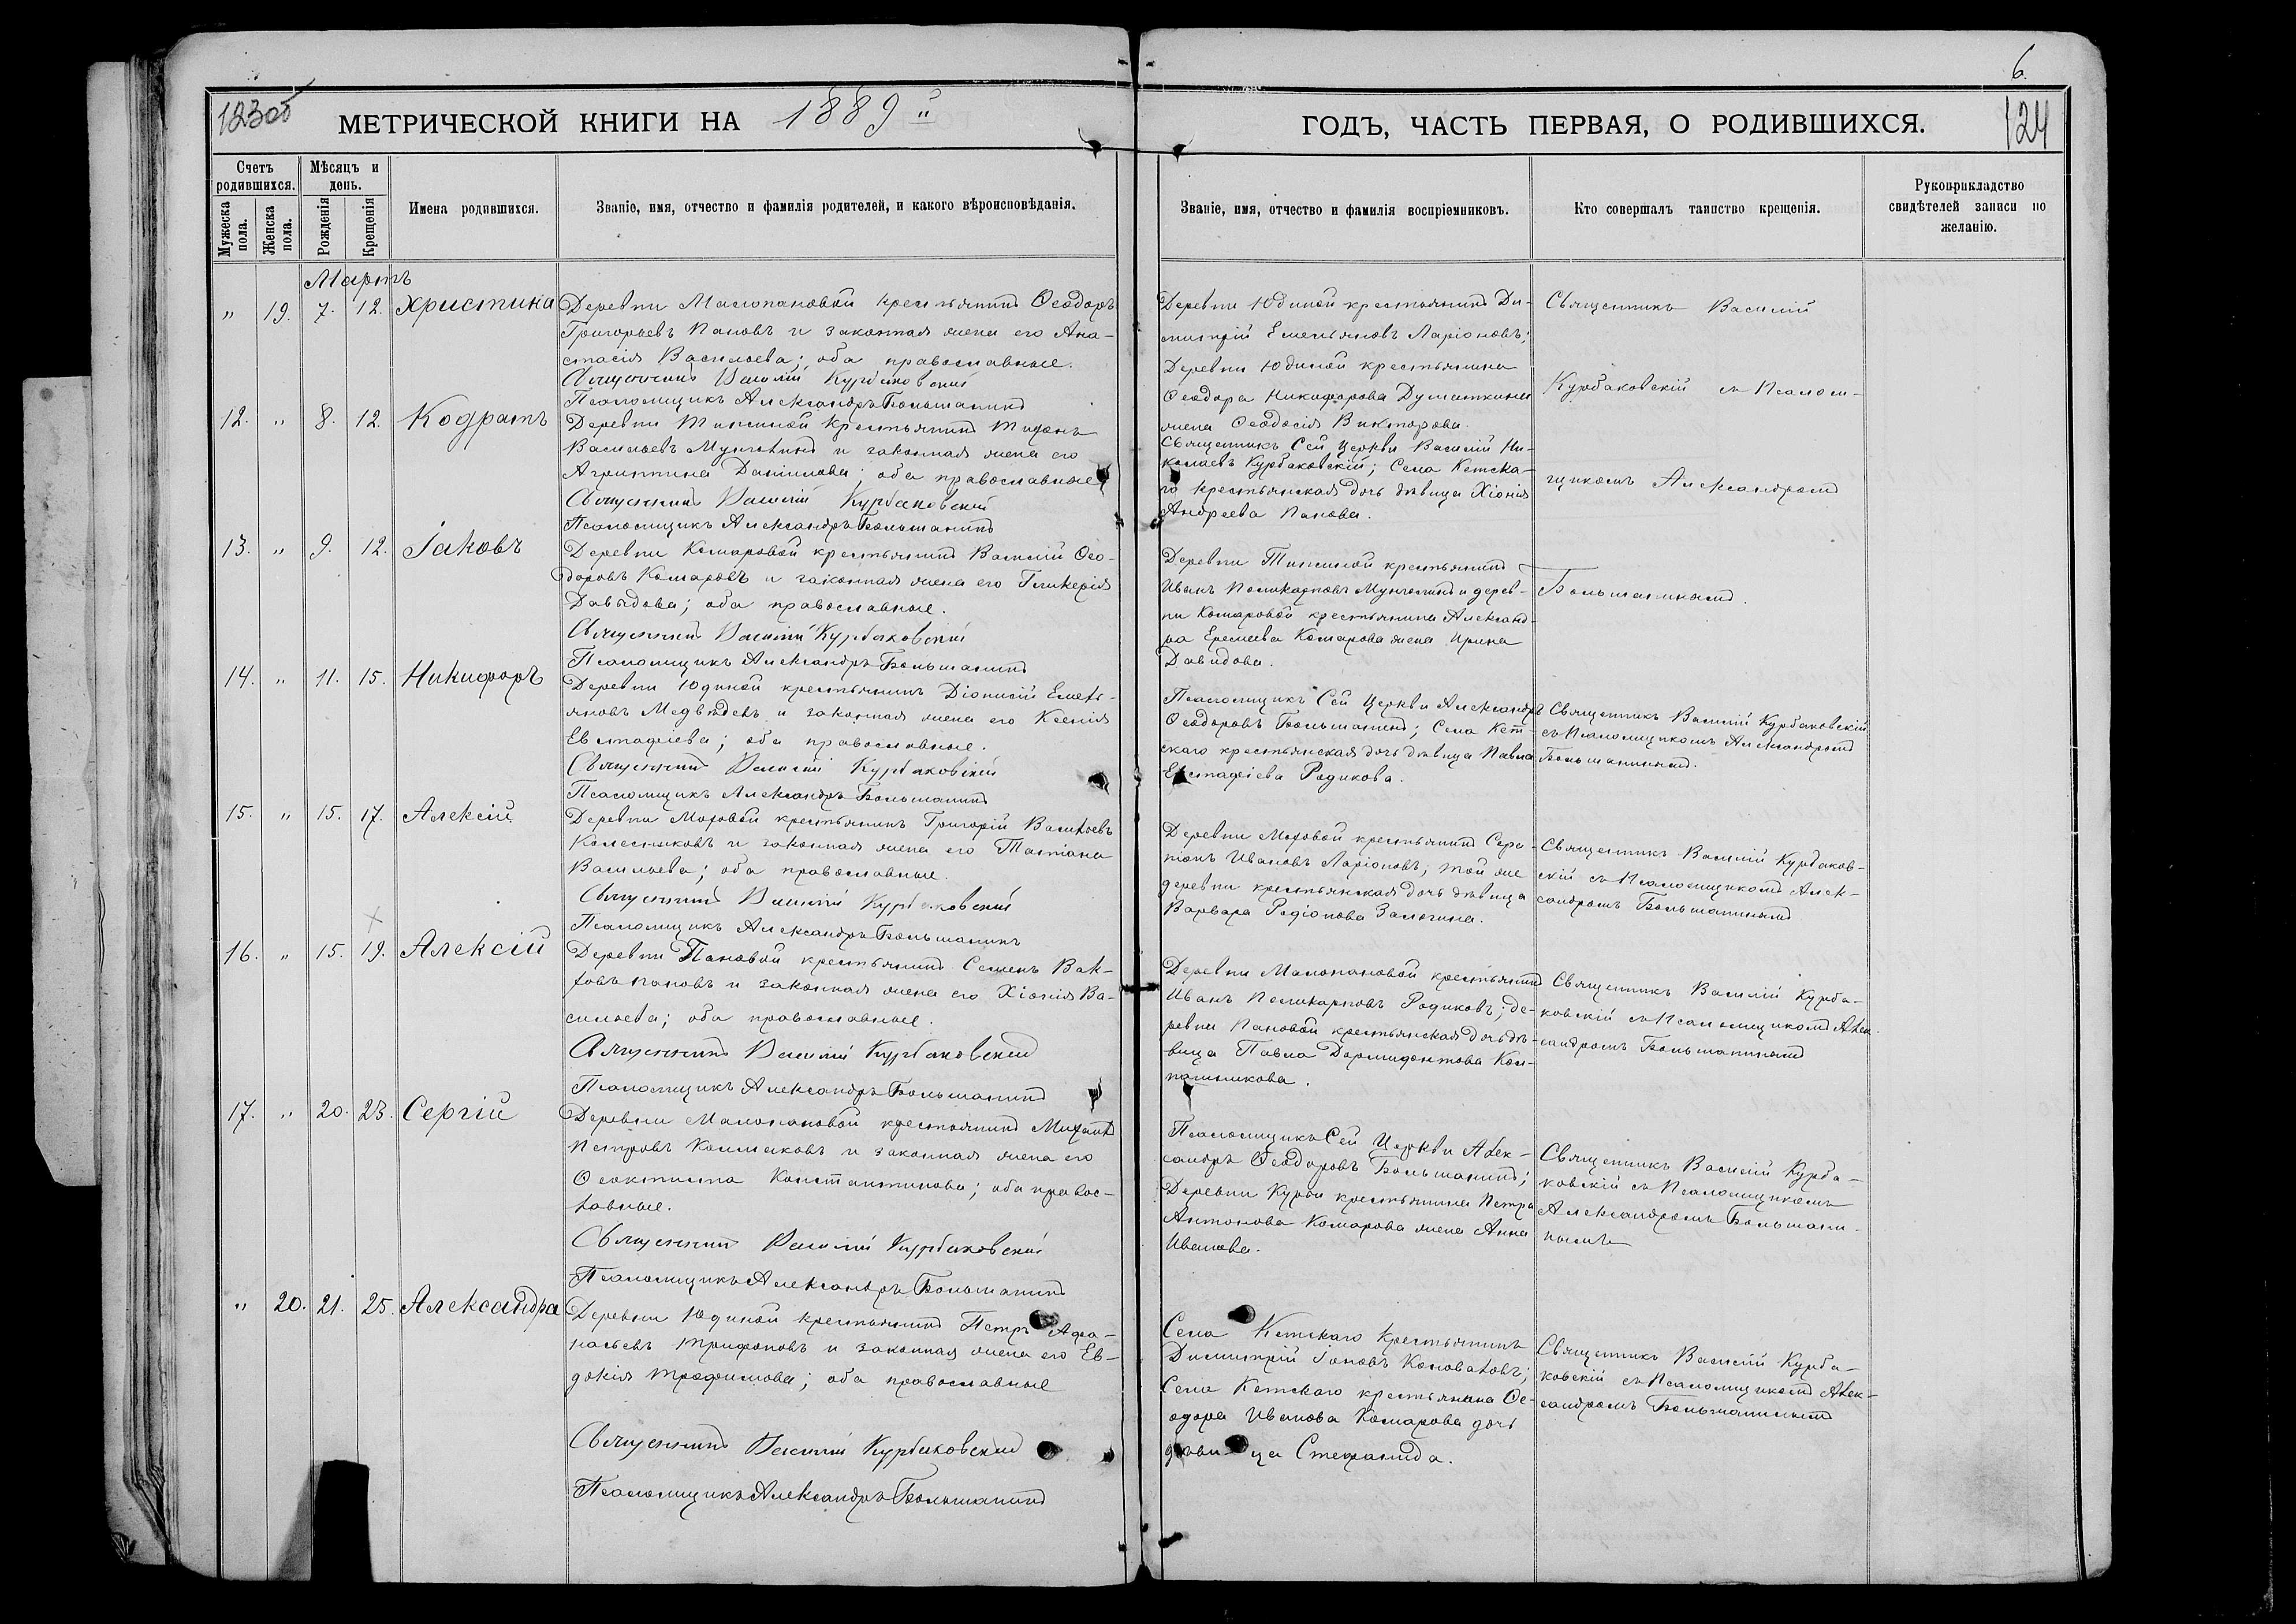 6.
123об
МЕТРИЧЕСКОЙ КНИГИ НА 1889й
ГОДЪ, ЧАСТЬ ПЕРВАЯ, О РОДИВШИХСЯ.
124
Счетъ родившихся.
Мужеска пола.
Женска пола.
Мѣсяцъ и день.
Рожденія
Крещенія
Имена родившихся.
Званіе, имя, отчество и фамилія родителей, и какого вѣроисповѣданія.
Званіе, имя, отчество и фамилія воспріемниковъ.
Кто совершалъ таинство крещенія.
Рукоприкладство свидѣтелей записи по желанію.
Мартъ
" 19. 7. 12. Христина
Деревни Малопановой крестьянинъ Ѳеодоръ
Григорьевъ Пановъ и законная жена его Ана-
стасія Васильева; оба православные.
Священникъ Василій Курбаковскій
Псаломщикъ Александръ Большанинъ
Деревни Юдиной крестьянинъ Ди-
митрій Емельяновъ Ларіоновъ;
Деревни Юдиной крестьянина
Ѳеодора Никифорова
жена Ѳеодосія Викторова.
Священникъ Василій
Курбаковскій съ Псалом-
щикомъ Александромъ
Большанинымъ.
12. " 8. 12. Кодратъ
Деревни Тихонъ
Васильевъ и законная жена его
Агриппина Даніилова; оба православные
Священникъ Василій Курбаковскій
Псаломщикъ Александръ Большанинъ
Священникъ Сей Церкви Василій Ни-
колаевъ Курбаковскій; Села Кетска-
го крестьянская дочь дѣвица Хіонія
Андреева Панова.
13. " 9. 12. Іаковъ
Деревни Комаровой крестьянинъ Василій Ѳео-
доровъ Комаровъ и законная жена его Гликерія
Давыдова; оба православные.
Священникъ Василій Курбаковскій
Псаломщикъ Александръ Большанинъ
Деревни крестьянинъ
Иванъ Поликарповъ и дерев-
ни Комаровой крестьянина Александ-
ра Еремеева Комарова жена Ирина
Давидова.
14. " 11. 15. Никифоръ
Деревни Юдиной крестьянинъ Діонисій Емель-
яновъ Медвѣдевъ и законная жена его Ксенія
Евстафіева; оба православные.
Священникъ Василій Курбаковскій
Псаломщикъ Александръ Большанинъ
Псаломщикъ Сей Церкви Александръ
Ѳеодоровъ Большанинъ; Села Кет-
скаго крестьянская дочь дѣвица Павла
Евстафіева Родикова.
Священникъ Василій Курбаковскій
съ Псаломщикомъ Александромъ
Большанинымъ.
15. " 15. 17. Алексій
Деревни Моховой крестьянинъ Григорій Васильевъ
Колесниковъ и законная жена его Татіана
Васильева; оба православные.
Священникъ Василій Курбаковскій
Псаломщикъ Александръ Большанинъ
Деревни Моховой крестьянинъ Сера-
піонъ Ивановъ Ларіоновъ; той же
деревни крестьянская дочь дѣвица
Варвара Родіонова
Священникъ Василій Курбаков-
скій съ Псаломщикомъ Алек-
сандромъ Большанинымъ
16. " 15. 19. Алексій
Деревни Пановой крестьянинъ Семенъ Вак-
ховъ Пановъ и законная жена его Хіонія Ва-
сильева; оба православные.
Священникъ Василій Курбаковскій
Псаломщикъ Александръ Большанинъ
Деревни Малопановой крестьянинъ
Иванъ Поликарповъ Родиковъ; де-
ревни Пановой крестьянская дочь дѣ-
вица Павла Дормидонтова Кол-
пашникова.
Священникъ Василій Курба-
ковскій съ Псаломщикомъ Алек-
сандромъ Большанинымъ
17. " 20. 23. Сергій
Деревни Малопановой крестьянинъ Михаилъ
Петровъ Колмаковъ и законная жена его
Ѳеоктиста Константинова; оба правос-
лавные.
Священникъ Василій Курбаковскій
Псаломщикъ Александръ Большанинъ
Псаломщикъ Сей Церкви Алек-
сандръ Ѳеодоровъ Большанинъ;
Деревни крестьянина Петра
Антонова Комарова жена Анна
Иванова.
Священникъ Василій Курба-
ковскій съ Псаломщикомъ
Александромъ Большани-
нымъ
" 20. 21. 25. Александра
Деревни Юдиной крестьянинъ Петръ Афа-
насьевъ Трифоновъ и законная жена его Ев-
докія Трофимова; оба православные
Священникъ Василій Курбаковскій
Псаломщикъ Александръ Большанинъ
Села Кетскаго крестьянинъ
Димитрій Іоновъ Коноваловъ;
Села Кетскаго крестьянина Ѳе-
одора Иванова Комарова дочь
дѣвица Стефанида.
Священникъ Василій Курба-
ковскій съ Псаломщикомъ Алек-
сандромъ Большанинымъ